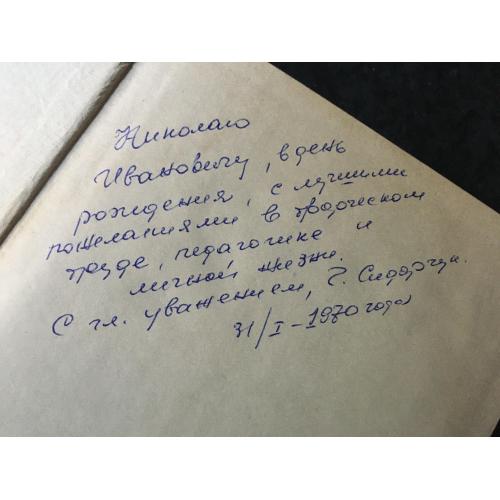 Николаю
Ивановичу, в день
рождения, с лучшими
пожеланиями в творческом
труде, педагогике и
личной жизни.
С гл. уважением, Г. Сидорчук.
31/I-1970 года